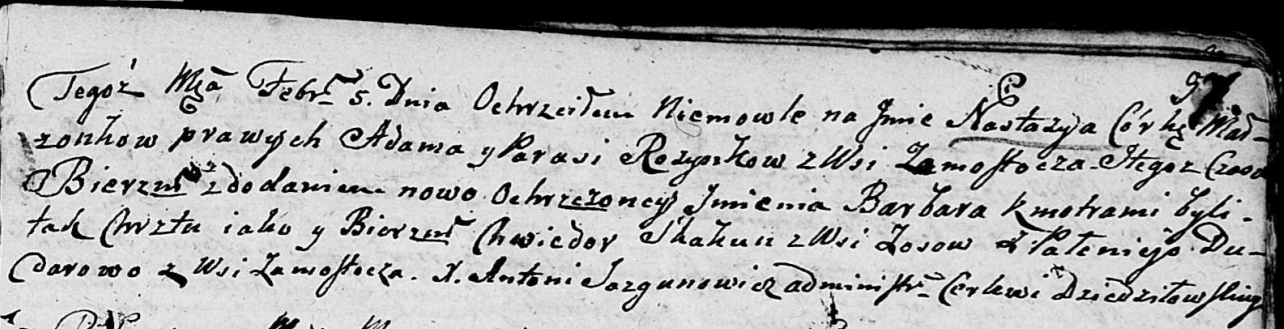 97
Tegoż Mca Febr. 5. Dnia Ochrzciłem Niemowle na Jmie Nastazya Córkę Mał-
zonkow prawych Adama y Parasi Rozynkow z Wsi Zamostocza. Itegoz Czasu
Bierzm z dodaniem nowo Ochrzczoney Jmienia Barbara kmotrami byli
tak Chrztu iako y Bierzm Chwiedor Skakun z Wsi Zosow z Du-
darowo z Wsi Zamostocza. X. Antoni Jazgunowicz administr. Cerkwi